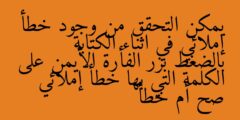 يمكن التحقق من وجود خطأ
إملائي في اثناء الكتابة
بالضغط بزر الفأرة الأيمن على
الكلمة التي بها خطأ إملائي
صح أم خطأ